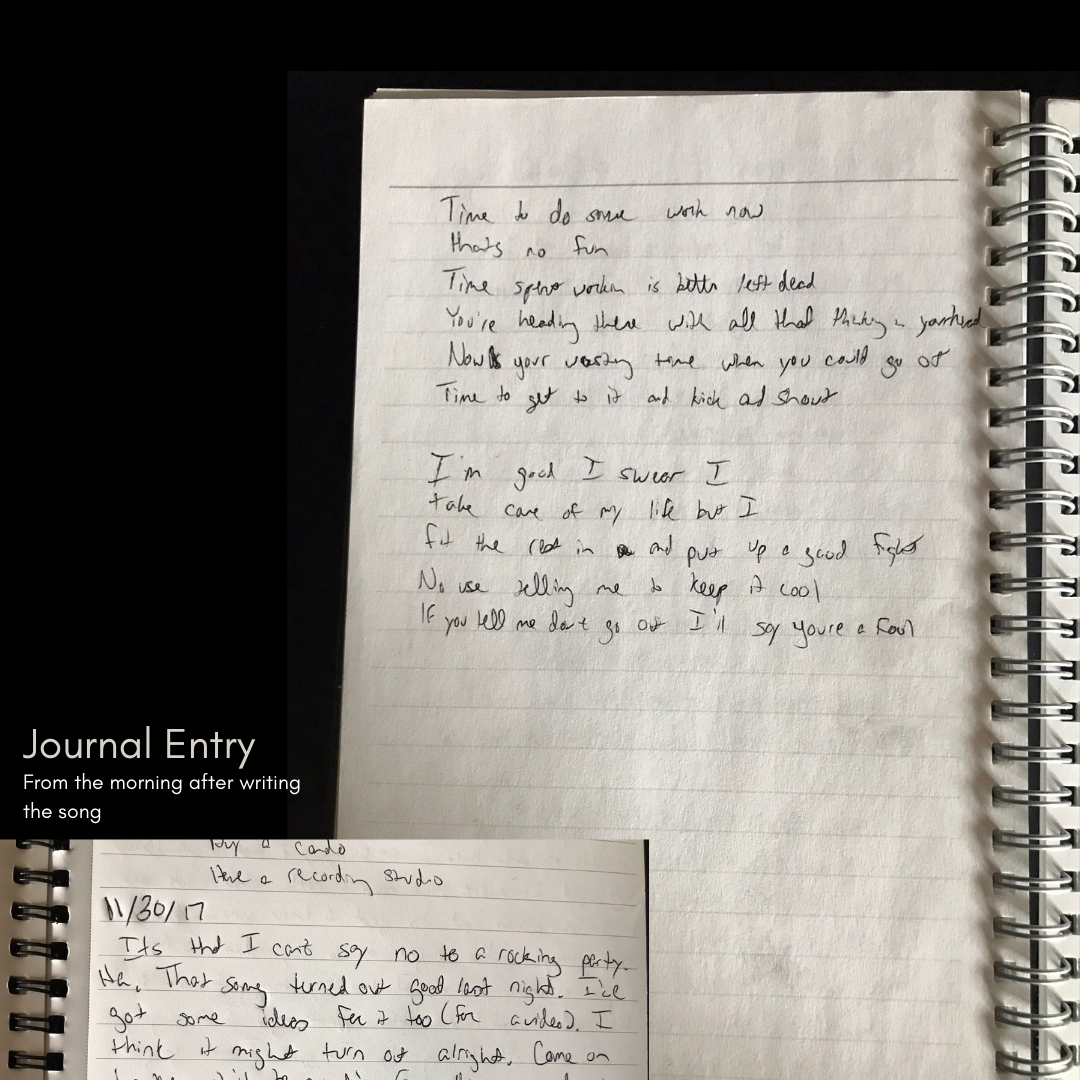 Time to do some work now
thats no fun
Time spent workin is better left dead
You're heading there with all that thinking in
Now your wasting time when you could go out
Time to get to it and kick and shout
I'm good I swear I
take care of my life but I
fit the rest in and put up a good fight
No use telling me to keep it cool
If you tell me dont go out I'll say youre a fool
Journal Entry
From the morning after writing
the song
Buy a condo
Have a recording studio
11/30/17
Its that I cant say no to a rocking party.
Ha. That song turned out good last night. I've
got some ideas for it too (for a video). I
think it might turn out alright. Come on